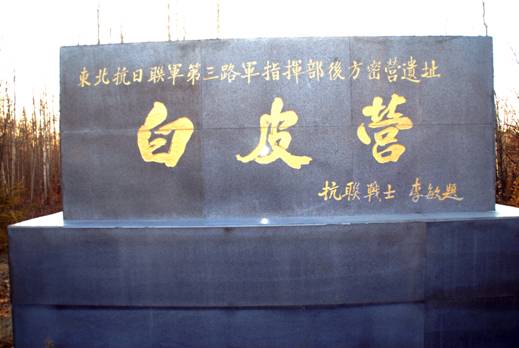 東北抗日聯軍第三路軍指揮部後方密营遺址
白皮营
抗联戰士 李敏題